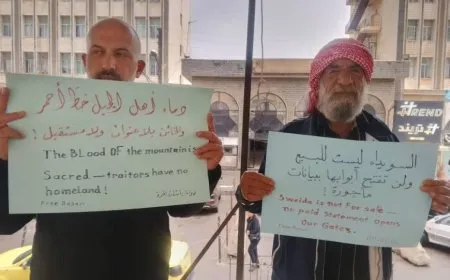 دماء أهل الجبل خط أحمر
والخائن بلا عنوان ولا مستقبل!
The BLood OF the mountain is
Sacred — traitors have no
homeland!
السويداء ليست للبيع
ولن تفتح أبوابها بيانات
مأجورة!
Sweida is not For sale —
no paid statement opens
Our Gates.
TREND
ترند